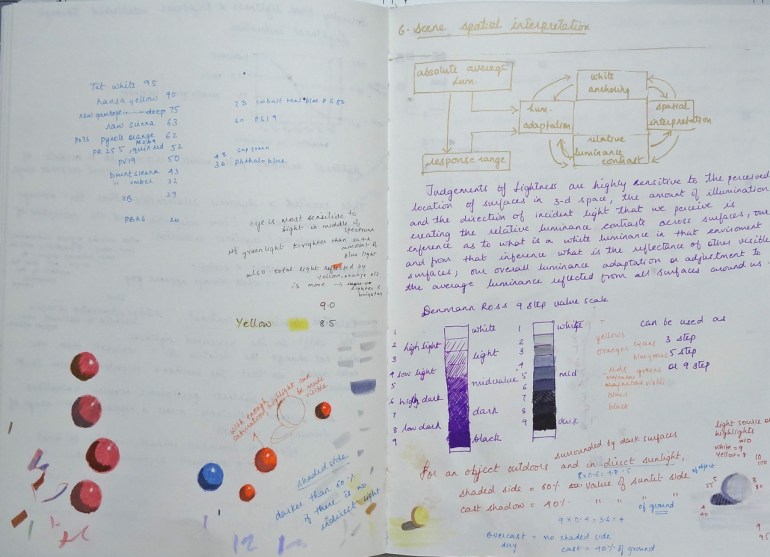 Tit white 95
hansa yellow 90
new gamboge deep 75
raw sienna 63
PO73 pyrole orange 62
PR 255 52
PV19 50
burnt sienna 43
" umber 32
29
PBR6 20
73 cobalt teal blue PG 50
50 PG19
43 sap green
36 phthalo blue
eye is most sensitive to
light in middle of
spectrum
green light brighter than same
amount of
blue light
also total light reflected by
yellow, orange all
is more → lighter &
brighter
9.0
Yellow 8.5
with enough
saturation, highlight can
be made
visible
shaded side
darker than 60%
if there is no
indirect light
6. Scene spatial interpretation
absolute average
lum.
white
anchoring
lum.
adaptation
spatial
interpretation
response range
relative
luminance
contrast
Judgements of lightness are highly sensitive to the perceived
location of surfaces in 3-d space, the amount of illumination
and the direction of incident light that we perceive is
creating the relative luminance contrasts across surfaces, our
inference as to what is a white luminance in that enviroment
and from that inference what is the reflectance of other visible
surfaces; our overall luminance adaptation or adjustment to
the average luminance reflected from all surfaces around us.
Denmann Ross 9 step value scale
1 white
2 high light
3 light
4 low light
5 midvalue
6 high dark
7 dark
8 low dark
9 black
1 white
2
3
4
5 mid
6
7
8
9 dark
yellows
oranges
greens
blues
black
can be used as
3 step
5 step
or 9 step
surrounded by dark surfaces
For an object outdoors and in direct sunlight,
shaded side = 60% value of sunlit side of object
cast shadow = 40% " " " of ground
9 x 0.4 = 3.6 = 4
overcast = no shaded side
day cast = 90% of ground
light source or
highlights
=10
white = 9
yellow = 8